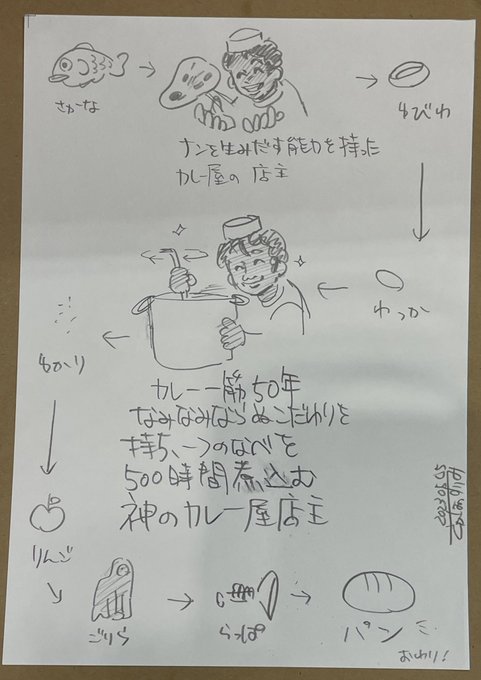 さかな
ナンを生みだす能力を持った
カレー屋の店主
ゆびわ
わっか
カレー一筋50年
なみなみならぬこだわりを
持ち、一つのなべを
500時間煮込む
神のカレー屋店主
ゆかり
りんご
ごりら
らっぱ
パン
おわり!
2023 05 05